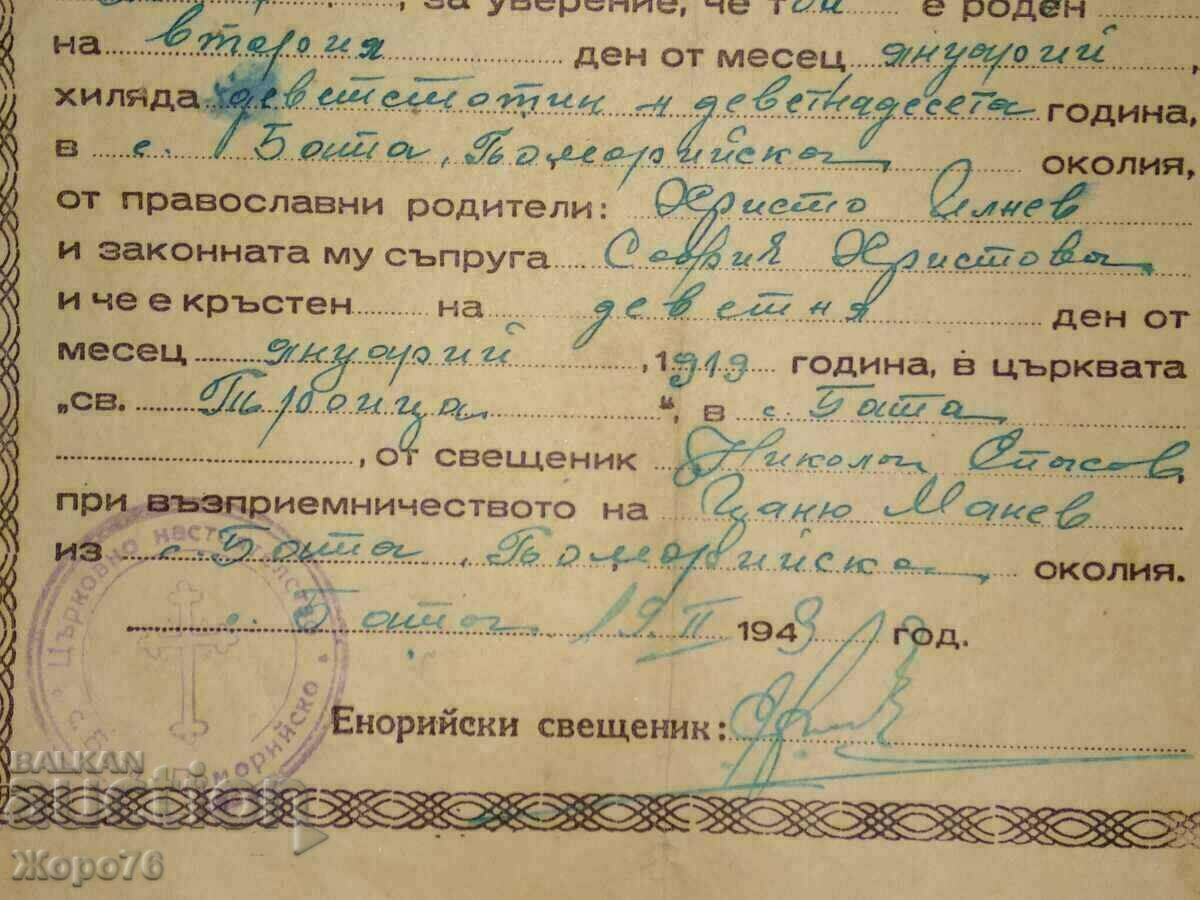 за уверение, че той е роден
на втория ден от месец януарий,
хиляда деветстотин и деветнадесета година,
в с. Бата, Поморийска околия,
от православни родители: Христо Илиев
и законната му съпруга София Христова
и че е кръстен на деветия ден от
месец януарий, 1919 година, в църквата
„св. Троица“, в с. Бата
, от свещеник Николай Спасов,
при възприемничеството на Цаню Манев
из с. Бата, Поморийска околия.
с. Бата 19. II 1943 год.
Енорийски свещеник:
Църковно настоятелство
Поморийско
BALKAN
auction
Жоро76